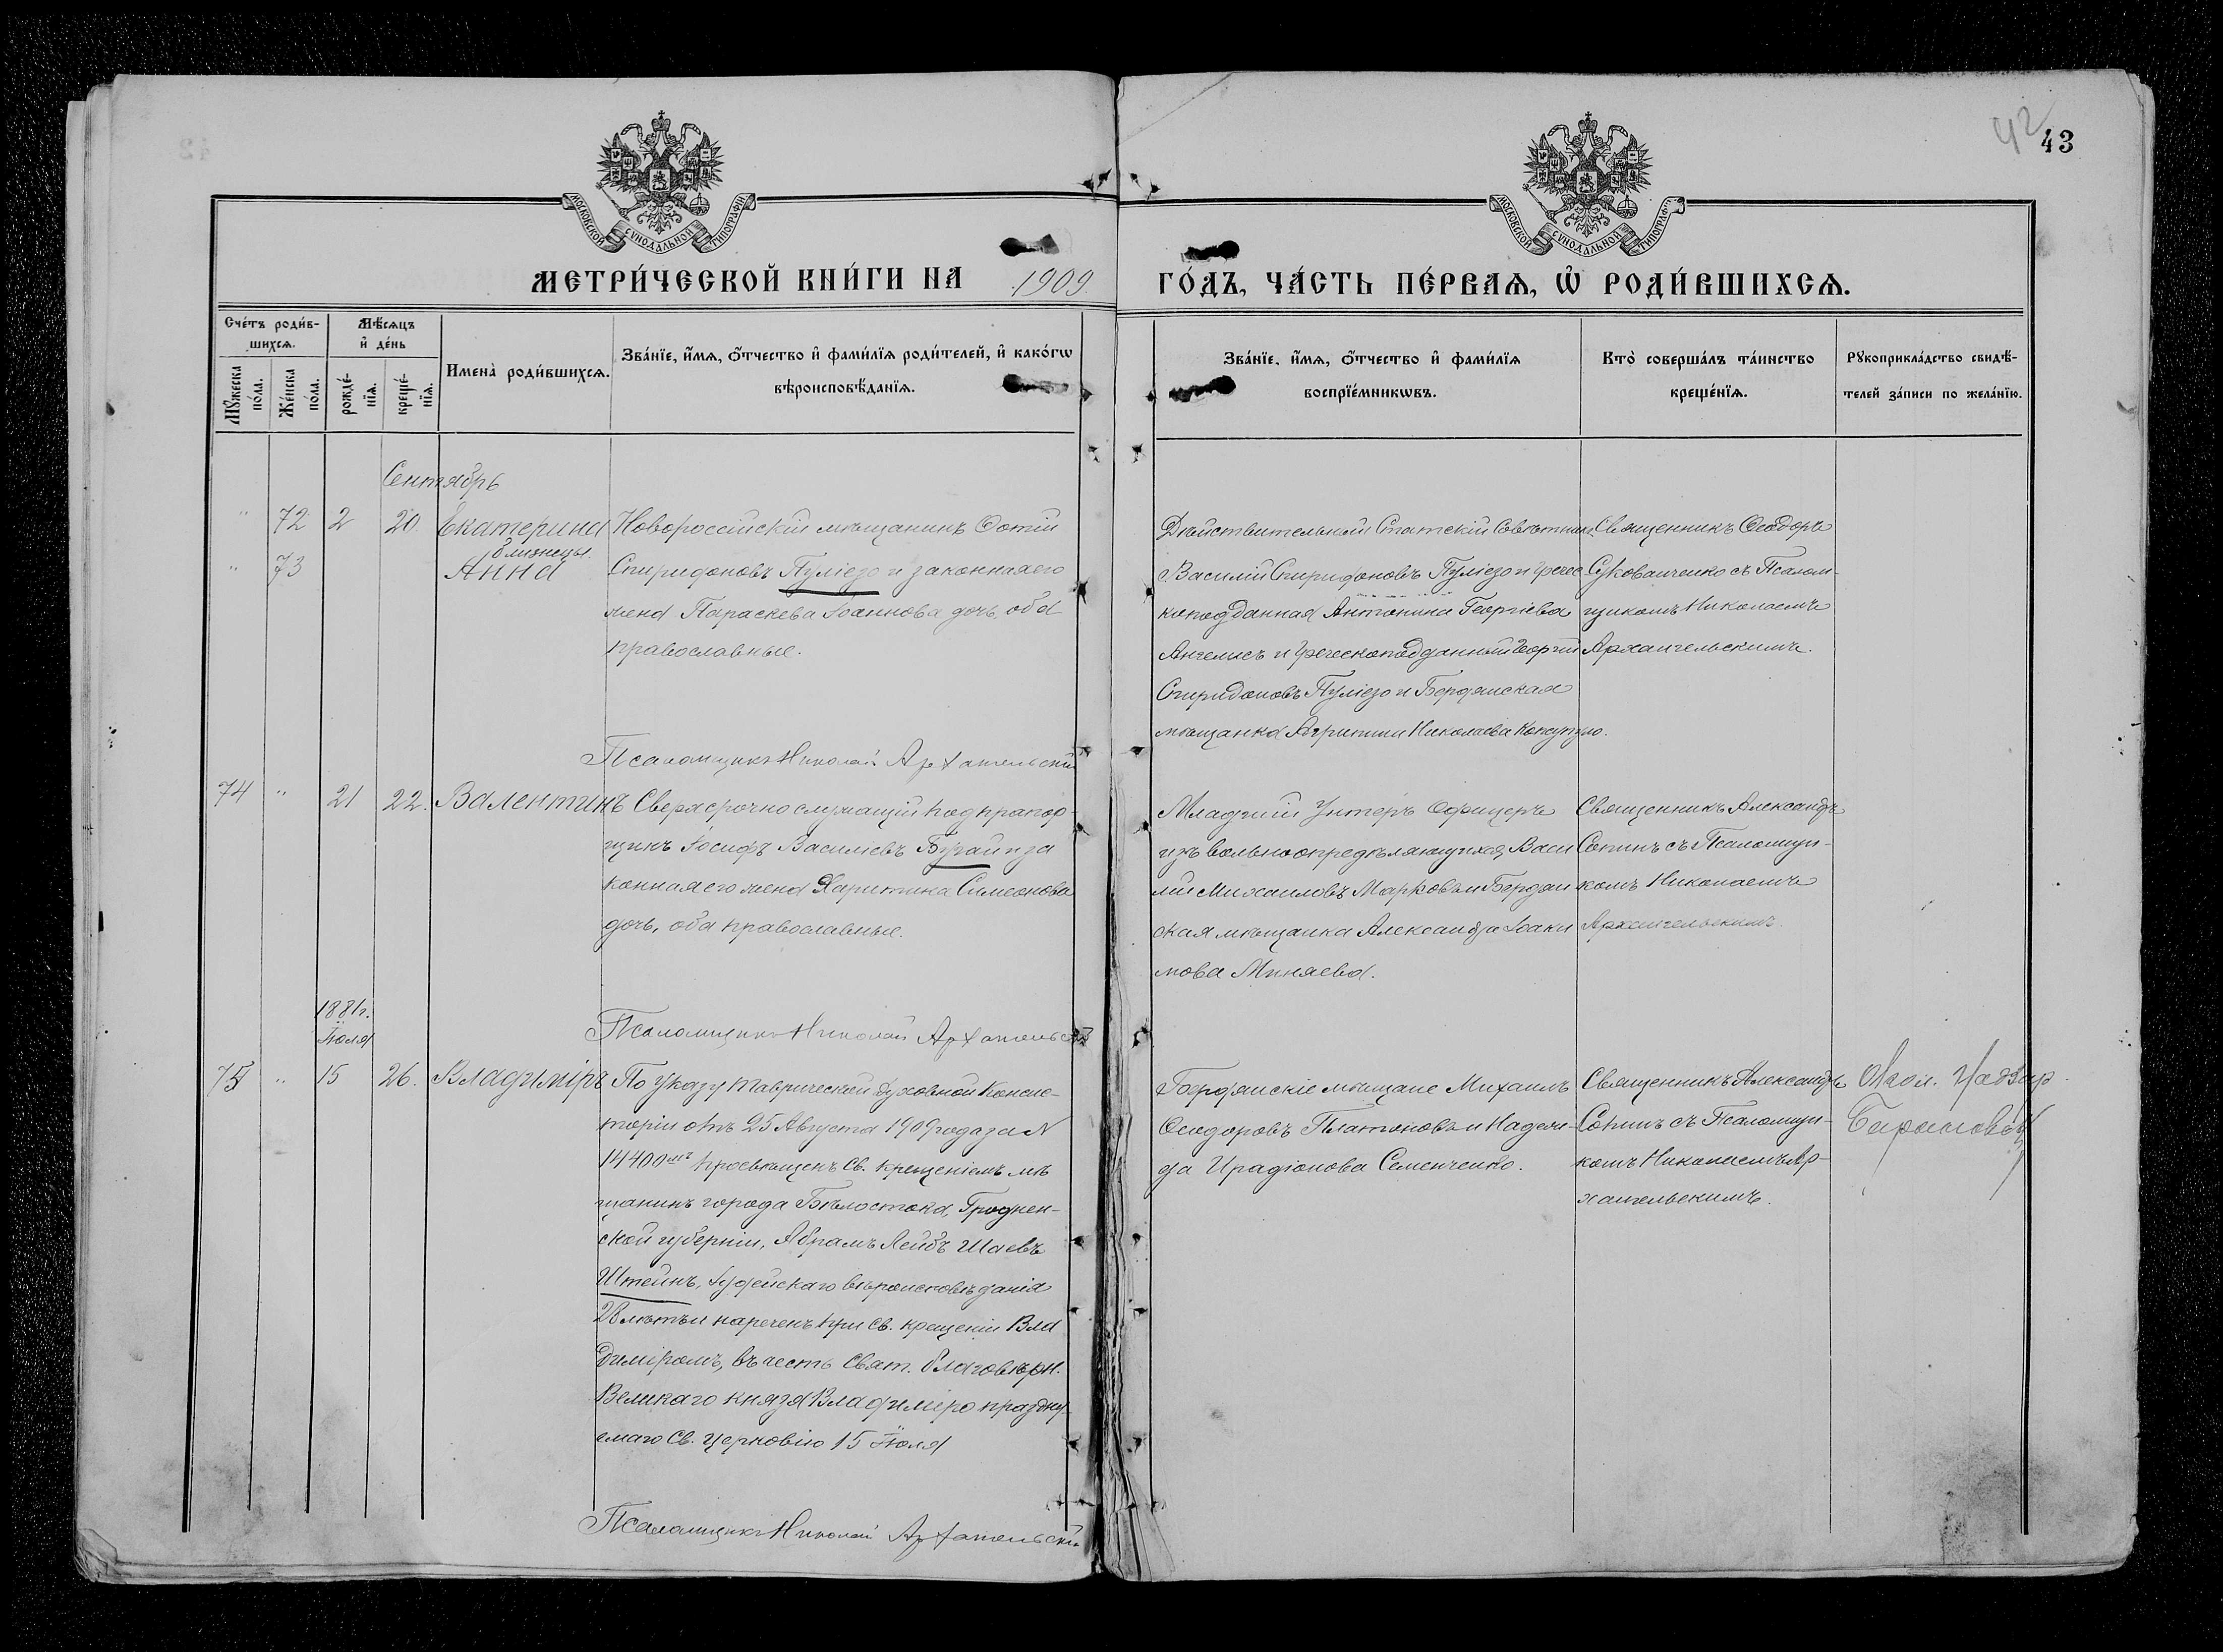 42
43
МОСКОВСКОЙ СѴНОДАЛЬНОЙ ТИПОГРАФІИ
МОСКОВСКОЙ СѴНОДАЛЬНОЙ ТИПОГРАФІИ
МЕТРИ́ЧЕСКОЙ КНИ́ГИ НА 1909 ГО́ДЪ, ЧА́СТЬ ПЕ́РВАѦ, Ѡ҆ РОДИ́ВШИХСѦ.
Сче́тъ роди́в-
шихсѧ.
Мꙋ́жеска
по́ла.
Же́нска
по́ла.
Мѣ́сѧцъ
и҆ де́нь
рожде́-
нїѧ.
креще́-
нїѧ.
Имена̀ роди́вшихсѧ.
Зва́нїе, и҆́мѧ, ѻ҆́тчество и҆ фами́лїѧ роди́телей, и҆ како́гѡ
вѣроисповѣ́данїѧ.
Зва́нїе, и҆́мѧ, ѻ҆́тчество и҆ фами́лїѧ
воспрїе́мникѡвъ.
Кто̀ соверша́лъ та́инство
креще́нїѧ.
Рꙋкоприкла́дство свидѣ́-
телей за́писи по жела́нїю.
Сентябрь
" 72 2 20. Екатерина
близнецы.
" 73 Анна
Новороссійскій мѣщанинъ Фотій
Спиридоновъ Пуліезо и законная его
жена Параскева Іоаннова дочь, оба
православные.
Дѣйствительный Статскій Совѣтникъ
Василій Спиридоновъ Пуліезо и гречес
коподданная Антонина Георгіева
Ангелисъ и греческоподданный Георгій
Спиридоновъ Пуліезо и Бердянская
мѣщанка Агрипина Николаева
Священникъ Ѳеодоръ
Сукованченко съ Псалом-
щикомъ Николаемъ
Архангельскимъ.
Псаломщикъ Николай Архангельскій
74 " 21 22. Валентинъ
Сверхсрочно служащій подпрапор-
щикъ Іосифъ Васильевъ Бугай и за
конная его жена Харитина Симеонова
дочь, оба православные.
Младшій Унтеръ Офицеръ
изъ вольноопредѣляющихся Васи
лій Михаиловъ Марковъ и Бердян
ская мѣщанка Александра Іоаки
мова Миняева.
Священникъ Александръ
Сопинъ съ Псаломщи-
комъ Николаемъ
Архангельскимъ.
Псаломщикъ Николай Архангельскій
1881г.
Іюля
75 " 15 26. Владиміръ
По указу Таврической Духовной Консис-
торіи отъ 25 Августа 1909 года за N
14400мъ просвѣщенъ Св. Крещеніемъ мѣ
щанинъ города Бѣлостока, Гроднен-
ской губерніи, Абрамъ Лейбъ Шаевъ
Штейнъ, Іудейскаго вѣроисповѣданія
28 лѣтъ и нареченъ при св. крещеніи Вла
диміромъ, въ честь Свят. благовѣрн.
Великаго князя Владиміра праздну-
емаго Св. Церковію 15 Іюля
Бердянскіе мѣщане Михаилъ
Ѳеодоровъ Платоновъ и Надеж-
да Ирадіонова Семенченко.
Священникъ Александръ
Сопинъ съ Псаломщи-
комъ Николаемъ Ар-
хангельскимъ.
Окол. Надзир.
Псаломщикъ Николай Архангельскій